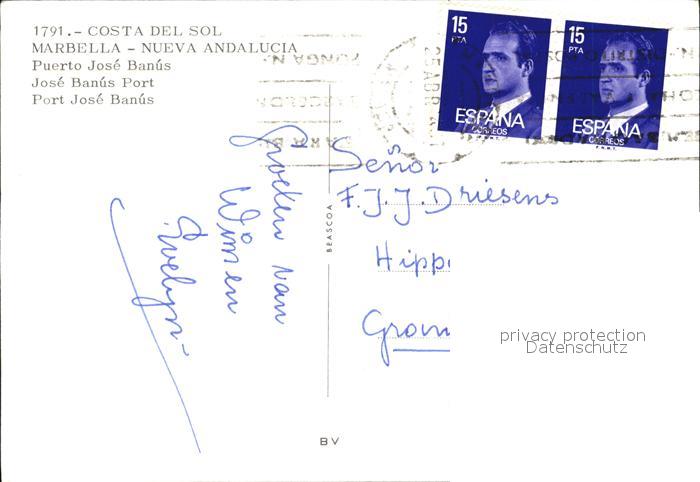 1791.- COSTA DEL SOL
MARBELLA - NUEVA ANDALUCIA
Puerto José Banús
José Banús Port
Port José Banús
Groeten van
Wim en
Evelyn
BEASCOA
BV
15
PTA
ESPAÑA
CORREOS
15
PTA
ESPAÑA
CORREOS
25 ABR
Señor
F.J.J. Driesens
Hipp
privacy protection
Datenschutz